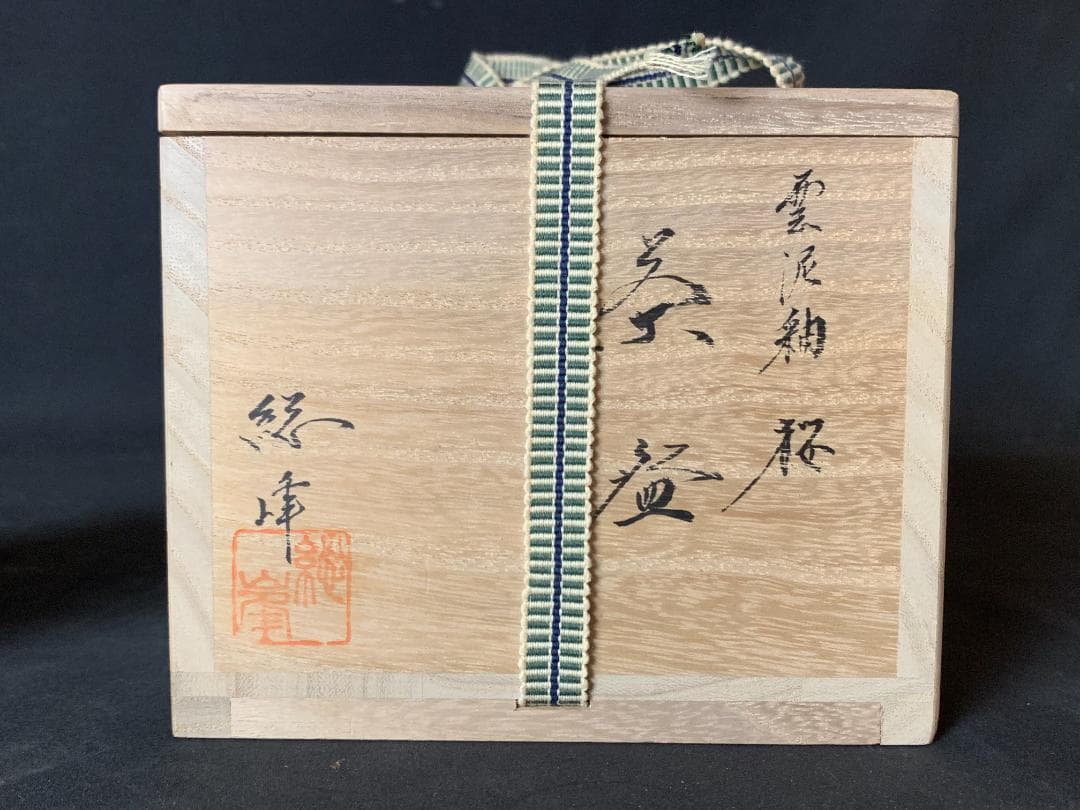 雲泥釉 桜
茶盌
総峰
総峰